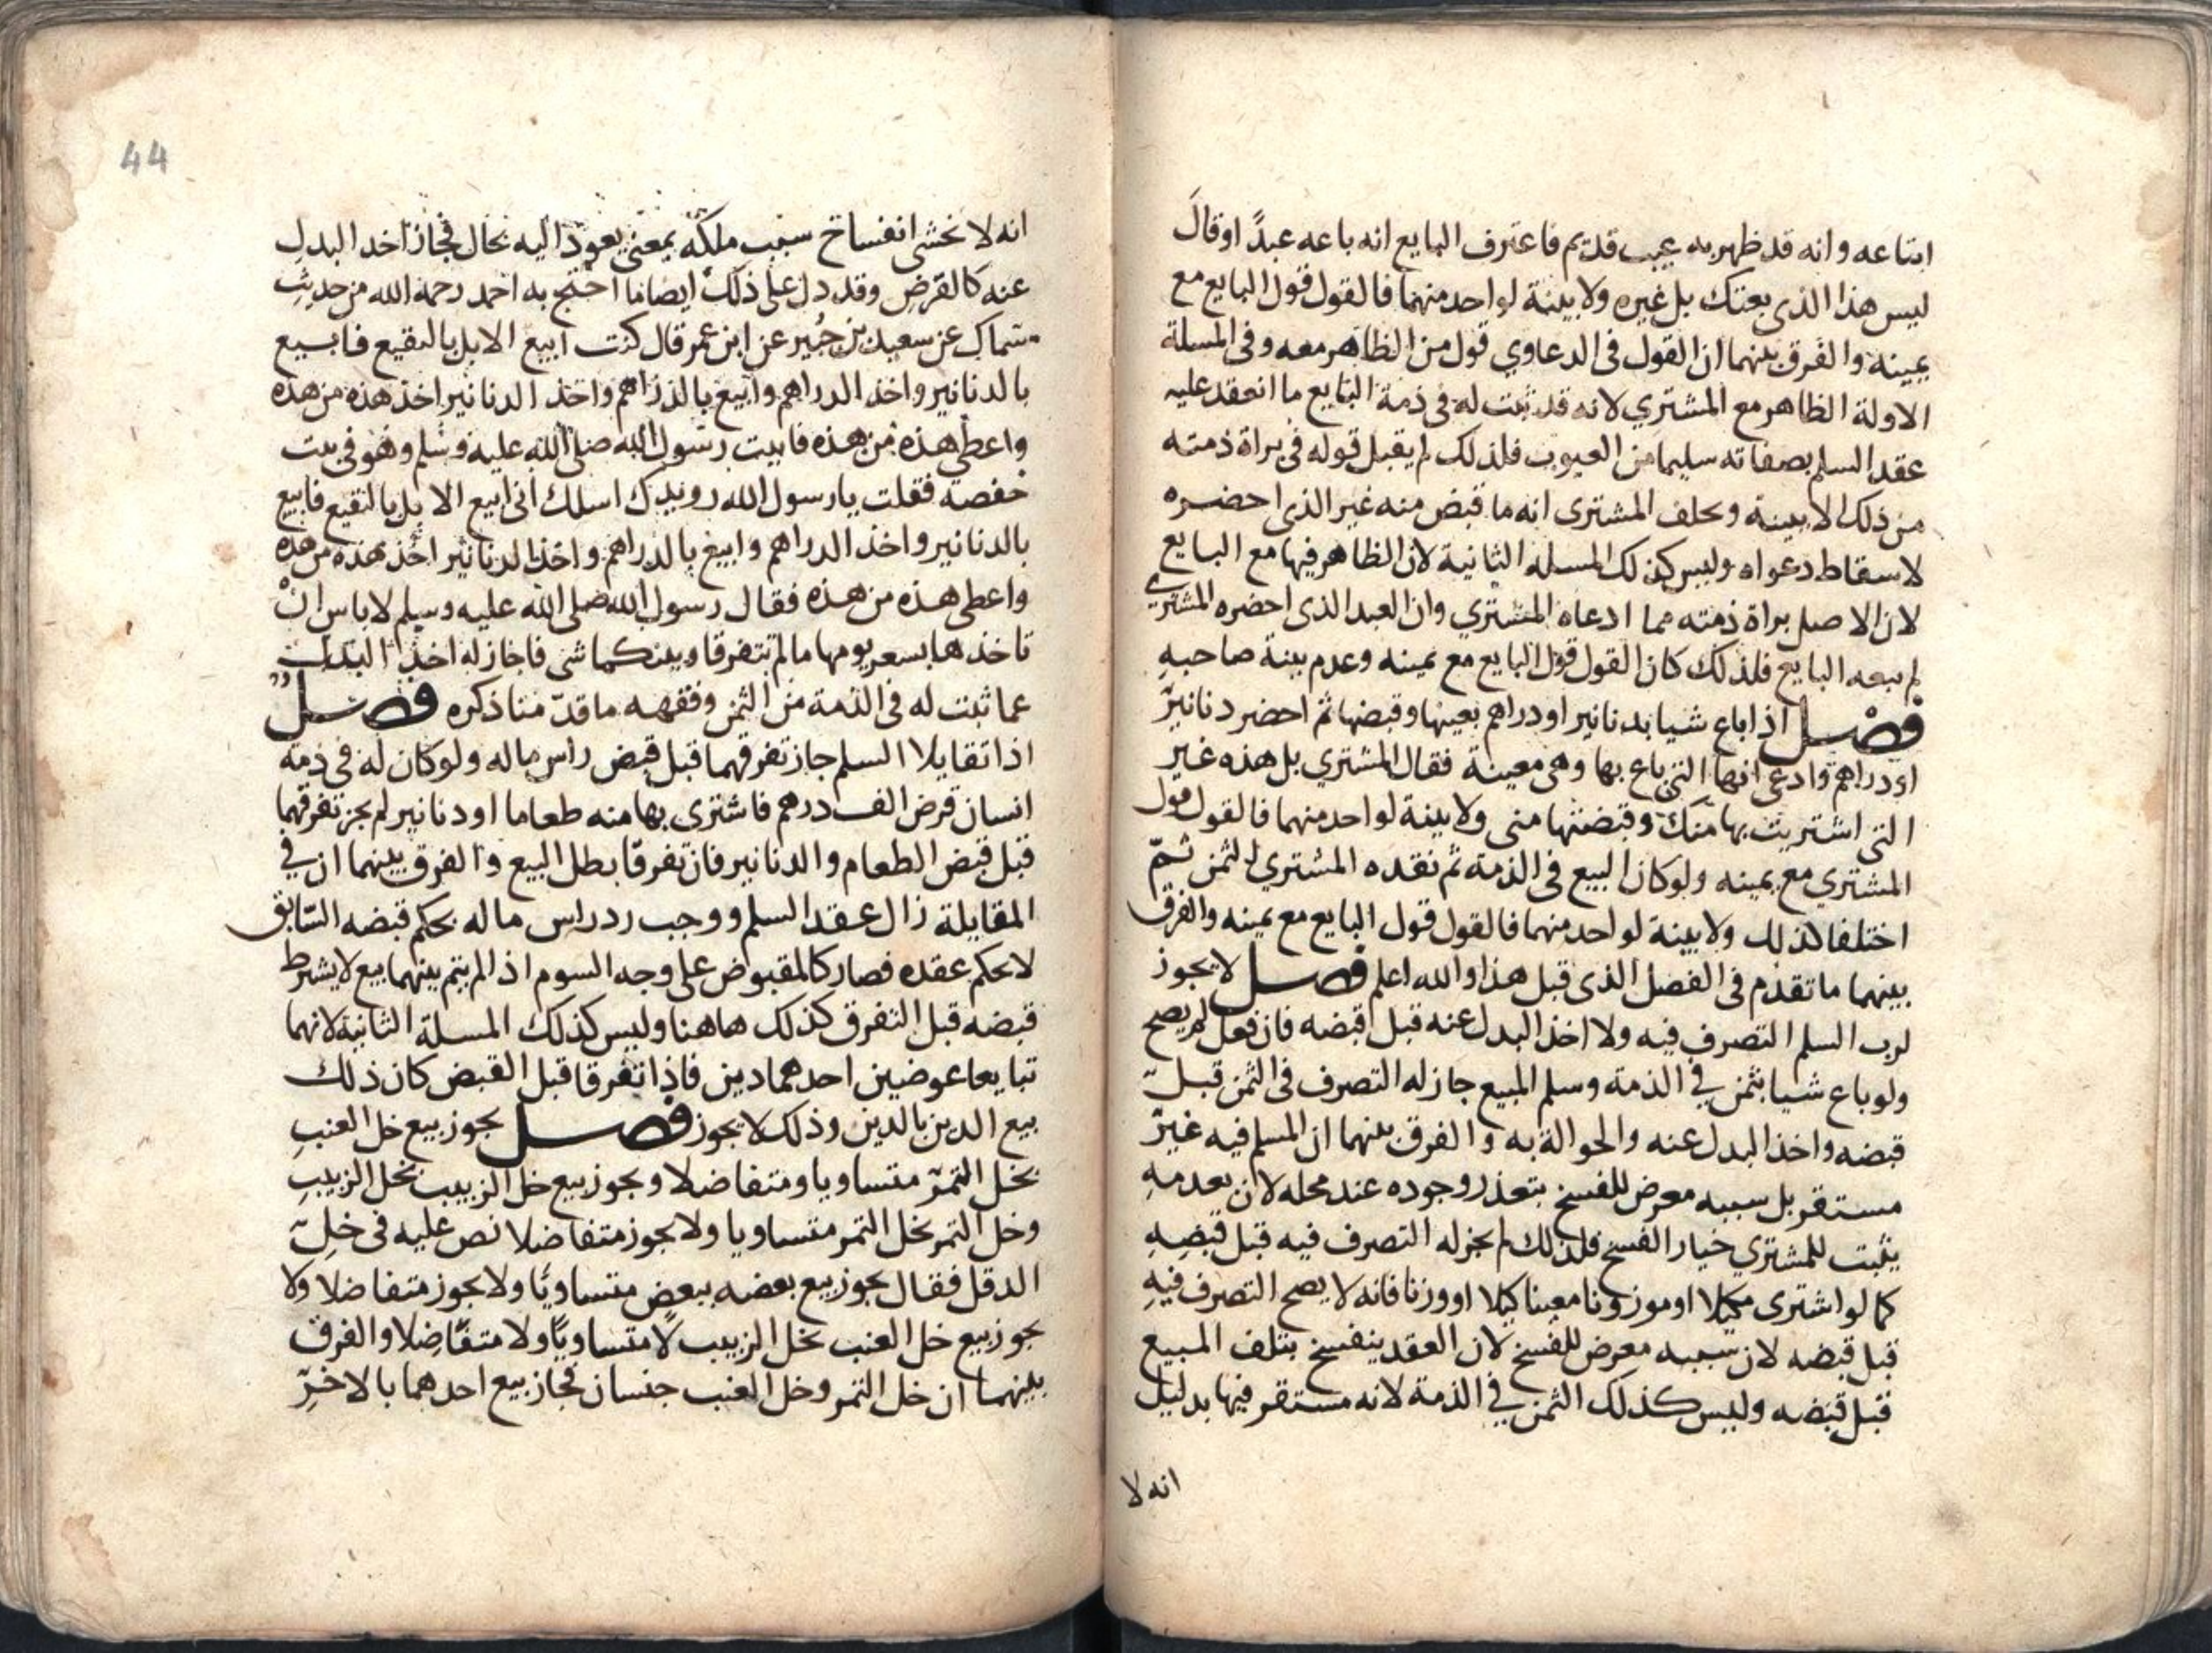 ابتاعه وانه قد ظهر به عيب قديم فاعترف البايع انه باعه عبدًا اوقالَ
ليس هذا الذي بعتك بل غيره ولا بينة لواحد منهما فالقول قول البايع مع
يمينه والفرق بينهما ان القول في الدعاوي قول من الظاهر معه وفي المسلة
الاولة الظاهر مع المشتري لانه قد ثبت له في ذمة البايع ما انعقد عليه
عقد السلم بصفاته سليما من العيوب فلذلك لم يقبل قوله في براة ذمته
من ذلك الا ببينة ويحلف المشترى انه ما قبض منه غير الذي احضره
لاسقاط دعواه وليس كذلك المسله الثانية لان الظاهر فيها مع البايع
لان الاصل براة ذمته مما ادعاه المشتري وان العبد الذي احضره المشتري
لم يبعه البايع فلذلك كان القول قول البايع مع يمينه وعدم بينة صاحبهِ
فصل اذا باع شيا بدنانير او دراهم بعينها وقبضها ثم احضر دنانير
او دراهم وادعى انها التي باع بها وهي معينة فقال المشتري بل هذه غير
التي اشتريت بها منك وقبضتها مني ولا بينة لواحد منهما فالقول قول
المشتري مع يمينه ولو كان البيع في الذمة ثم نقده المشتري الثمن ثمّ
اختلفا كذلك ولا بينة لواحد منهما فالقول قول البايع مع يمينه والفرق
بينهما ما تقدم في الفصل الذي قبل هذا والله اعلم فصل لا يجوز
لرب السلم التصرف فيه ولا اخذ البدل عنه قبل قبضه فان فعل لم يصح
ولو باع شيا بثمن في الذمة وسلم المبيع جاز له التصرف في الثمن قبل
قبضه واخذ البدل عنه والحوالة به والفرق بينهما ان المسلم فيه غير
مستقر بل سببه معرض للفسخ بتعذر وجوده عند محله لان بعدمهِ
يثبت للمشتري خيار الفسخ فلذلك لم يجز له التصرف فيه قبل قبضِهِ
كما لو اشترى مكيلا او موزونا معينا كيلا او وزنا فانه لا يصح التصرف فيهِ
قبل قبضه لان سببه معرض للفسخ لان العقد ينفسخ بتلف المبيع
قبل قبضه وليس كذلك الثمن في الذمة لانه مستقر فيها بدليل
انه لا
44
انه لا نخشى انفساخ سبب ملكه بمعنى يعود اليه بحال فجاز اخذ البدلِ
عنه كالقرض وقد دل على ذلك ايضا ما احتج به احمد رحمة الله من حديثِ
سماك عن سعيد بن جُبير عن ابن عمر قال كنت ابيع الابل بالبقيع فابيع
بالدنانير واخذ الدراهم وابيع بالدراهم واخذ الدنانير اخذ هذه من هذه
واعطي هذه من هذه فاتيت رسول الله صلى الله عليه وسلم وهو في بيت
حفصة فقلت يا رسول الله رويدك اسلك اني ابيع الابل بالبقيع فابيع
بالدنانير واخذ الدراهم وابيع بالدراهم واخذ الدنانير اخذ هذه من هذه
واعطي هذه من هذه فقال رسول الله صلى الله عليه وسلم لا باس انْ
تاخذها بسعر يومها ما لم تتفرقا وبينكما شي فاجاز له اخذ البدل
عما ثبت له في الذمة من الثمن وفقهه ما قدّمنا ذكره فصل
اذا تقايلا السلم جاز تفرقهما قبل قبض راس ماله ولو كان له في ذمة
انسان قرض الف درهم فاشترى بها منه طعاما او دنانير لم يجز تفرقهما
قبل قبض الطعام والدنانير فان تفرقا بطل البيع والفرق بينهما ان في
المقايلة زال عقد السلم ووجب رد راس ماله بحكم قبضه السّابق
لا بحكم عقده فصار كالمقبوض على وجه السوم اذا لم يتم بينهما بيع لا يشترط
قبضه قبل التفرق كذلك هاهنا وليس كذلك المسلة الثانية لانهما
تبايعا عوضين احدهما دين فاذا تفرقا قبل القبض كان ذلك
بيع الدين بالدين وذلك لا يجوز فصل يجوز بيع خل العنبِ
بخل التمر متساويا ومتفاضلا ويجوز بيع خل الزبيب بخل الزبيبِ
وخل التمر بخل التمر متساويا ولا يجوز متفاضلا نص عليه في خلِ
الدقل فقال يجوز بيع بعضه ببعض متساويًا ولا يجوز متفاضلا ولا
يجوز بيع خل العنب بخل الزبيب لا متساويًا ولا متفاضِلا والفرق
بينهما ان خل التمر وخل العنب جنسان فجاز بيع احدهما بالاخرِ